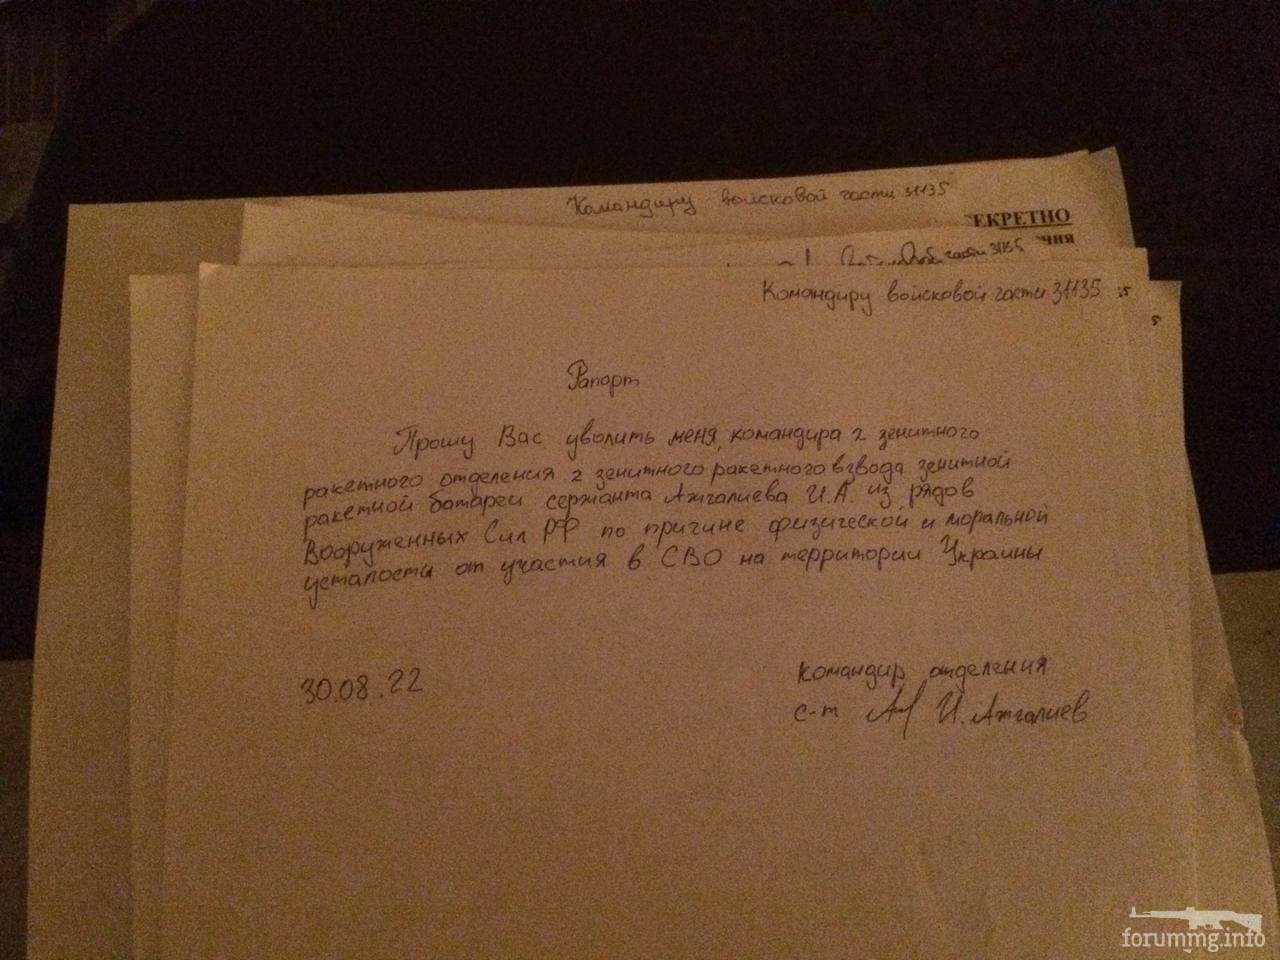 Командиру войсковой части 31135
ЕКРЕТНО
ния
части 31135
Командиру войсковой части 31135
5
5
Рапорт
Прошу Вас уволить меня, командира 2 зенитного
ракетного отделения 2 зенитного ракетного взвода зенитной
ракетной батареи сержанта Ажгалиева И.А. из рядов
Вооруженных Сил РФ по причине физической и моральной
усталости от участия в СВО на территории Украины
30.08.22
командир отделения
с-т И. Ажгалиев
forummg.info